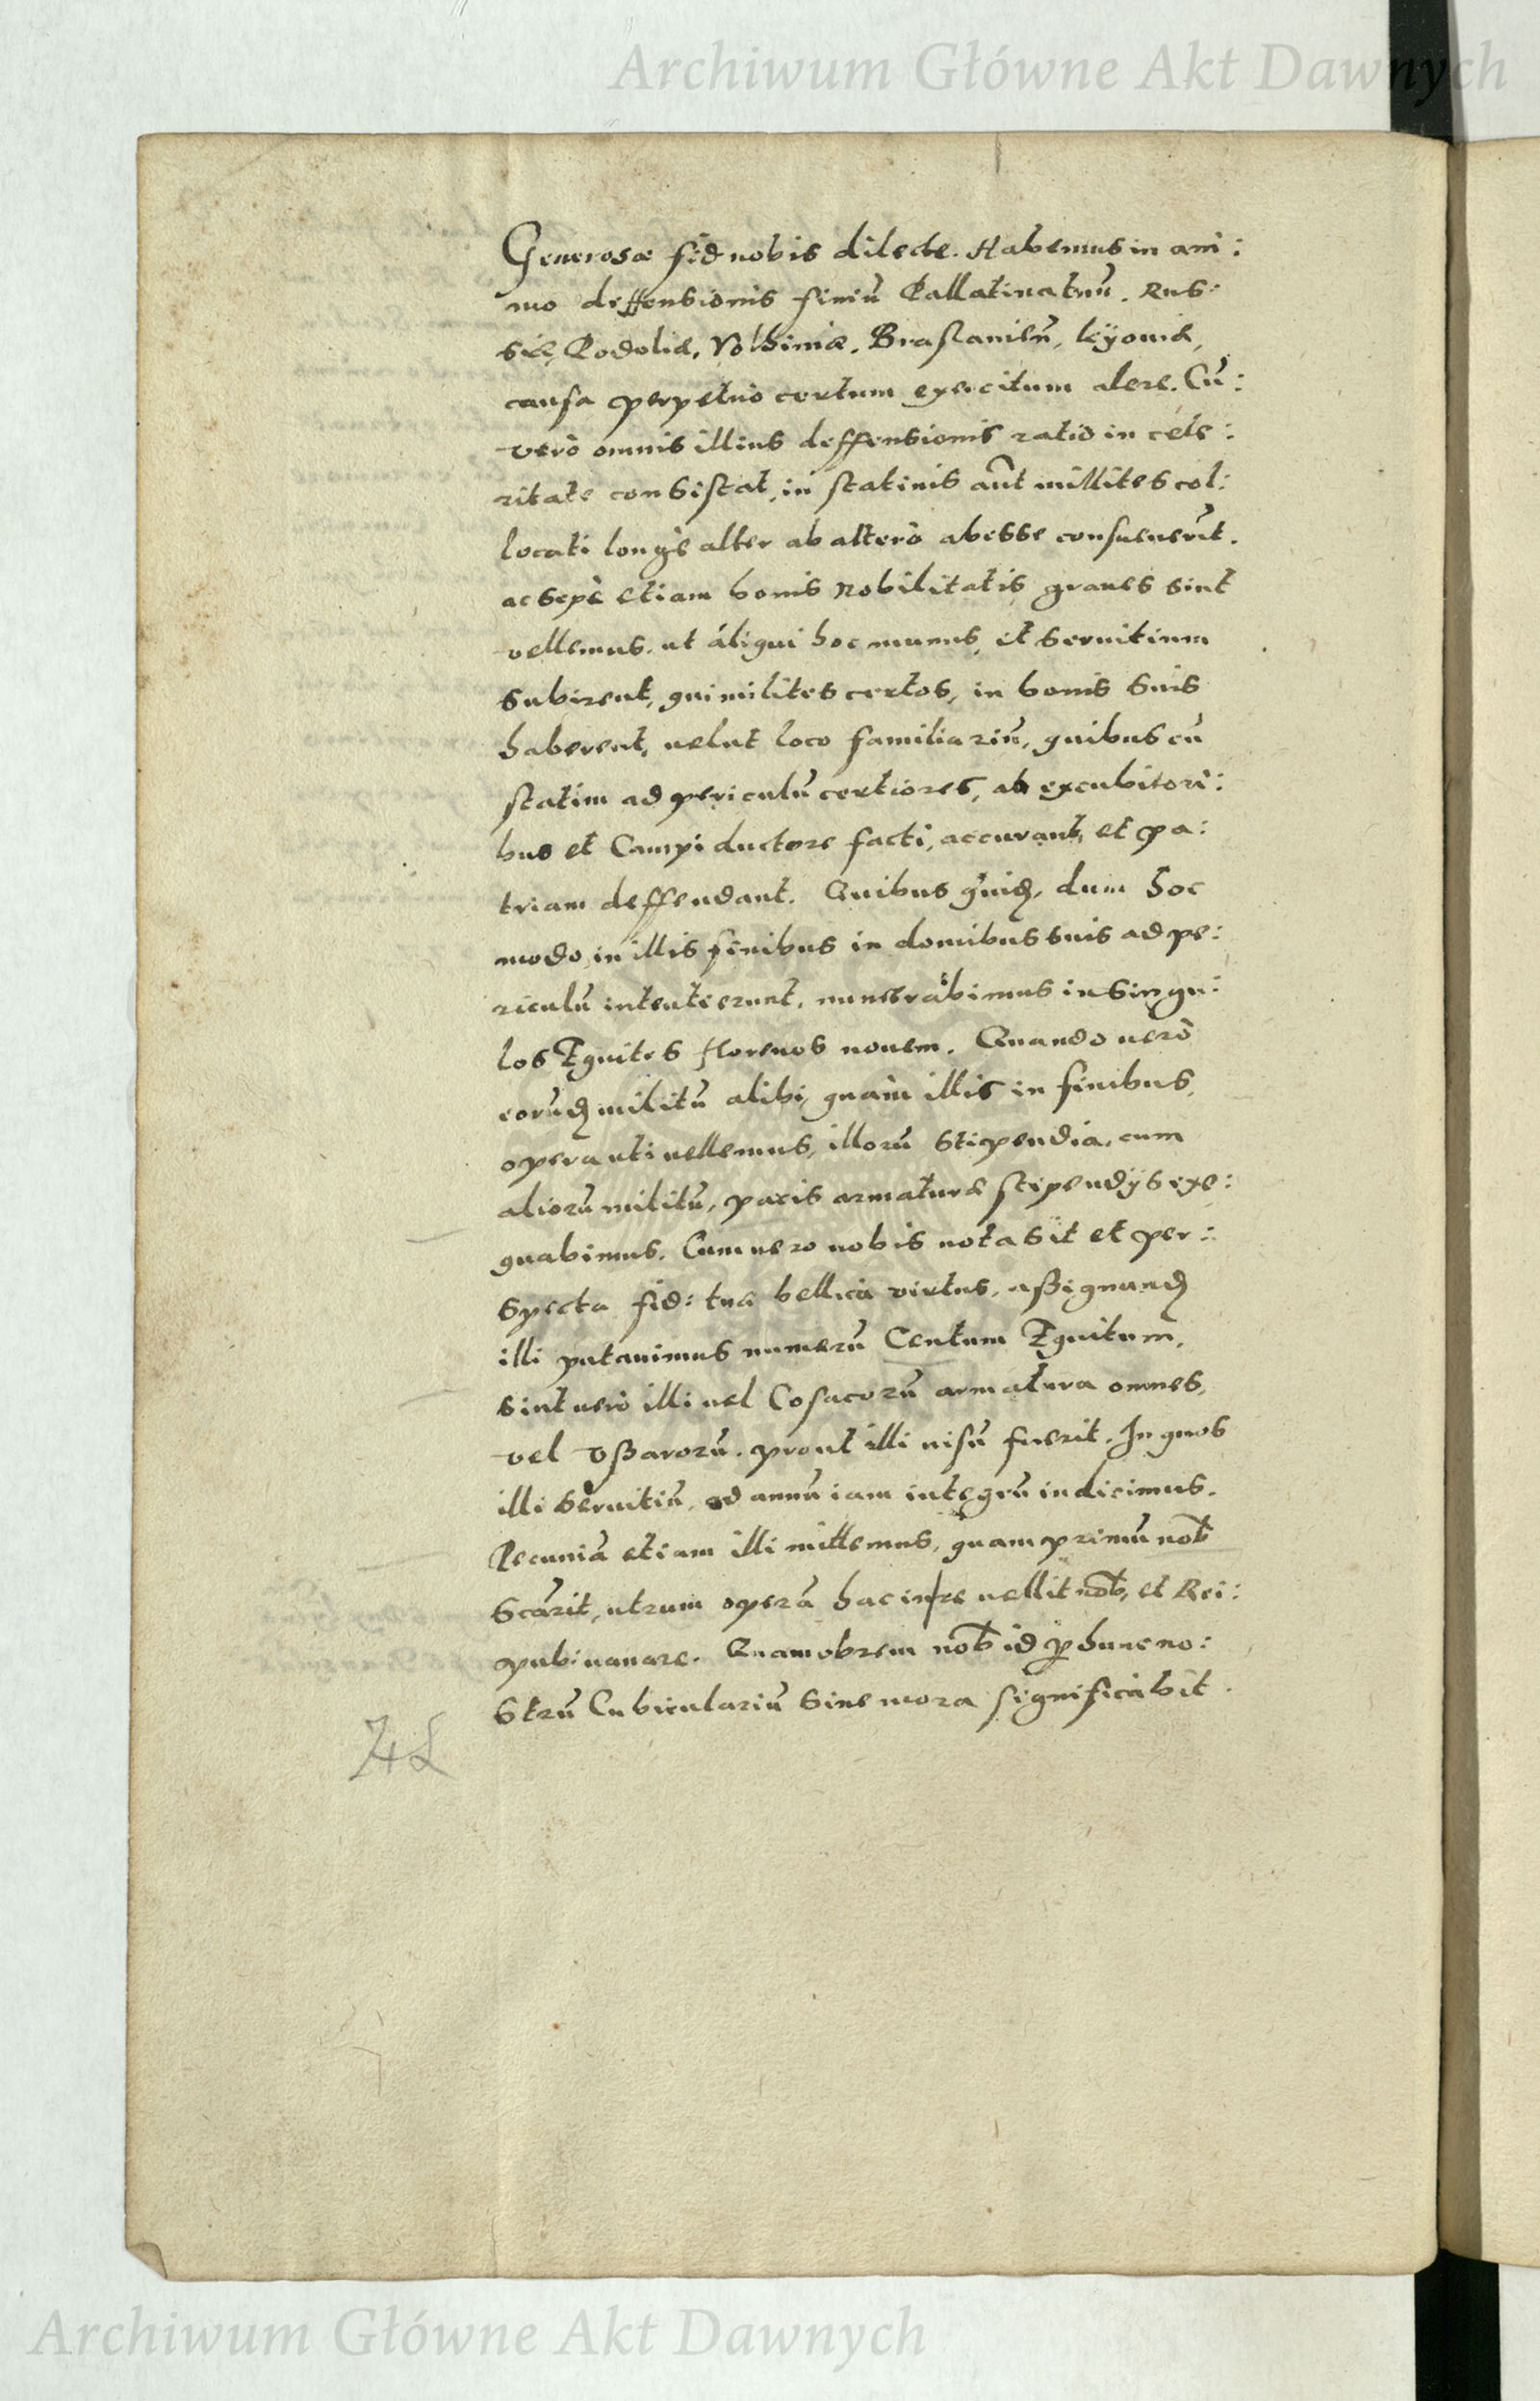 Archiwum Główne Akt Dawnych
Generosæ fid nobis dilecte. Habemus in ani:
mo deffensionis finiū Pallatinatuū. Rus:
siæ, Podoliæ, Volhiniæ, Braslanieñ, kÿoviæ,
causa perpetuò certum exercitum alere. Cū:
verò omnis illius deffensionis ratio in cele:
ritate consistat, in statinis aūt millites col:
locati longè alter ab alterò abesse consueuerūt.
ac sepè etiam bonis Nobilitatis graues sint
vellemus. ut áliqui hoc munus, et seruitium
subirent, qui milites certos, in bonis suis
haberent, uelut loco familiariū, quibus cū
statim ad periculū certiores, ab excubitori:
bus et Campi ductore facti, accurant, et pa:
triam deffendant. Quibus quidꝫ, dum hoc
modo in illis finibus in domibus suis ad pe:
riculū intenti erunt. numerabimus in singu:
los Equites florenos nouem. Quando uerò
eorūdꝫ militū alibi, quàm illis in finibus,
opera uti uellemus, illorū stipendia, cum
aliorū militū, paris armaturæ stipendÿs exe:
quabimus. Cum uero nobis nota sit et per:
specta fid: tuæ bellica virtus, aßignandꝫ
illi putauimus numerū Centum Equitum,
sint uerò illi uel Cosacorū armatura omnes,
vel Vßarorū. prout illi uisū fuerit. In quos
illi seruitiū, ad annū iam integrū indicimus.
Pecuniā etiam illi mittemus, quamprimū nob̄
scārit, utrum operā hac in re uellit nob̄, et Rei:
pub: nauare. Quamobrem nob̄ id ꝑ hunc no:
strū Cubicularium sine mora significabit.
Archiwum Główne Akt Dawnych